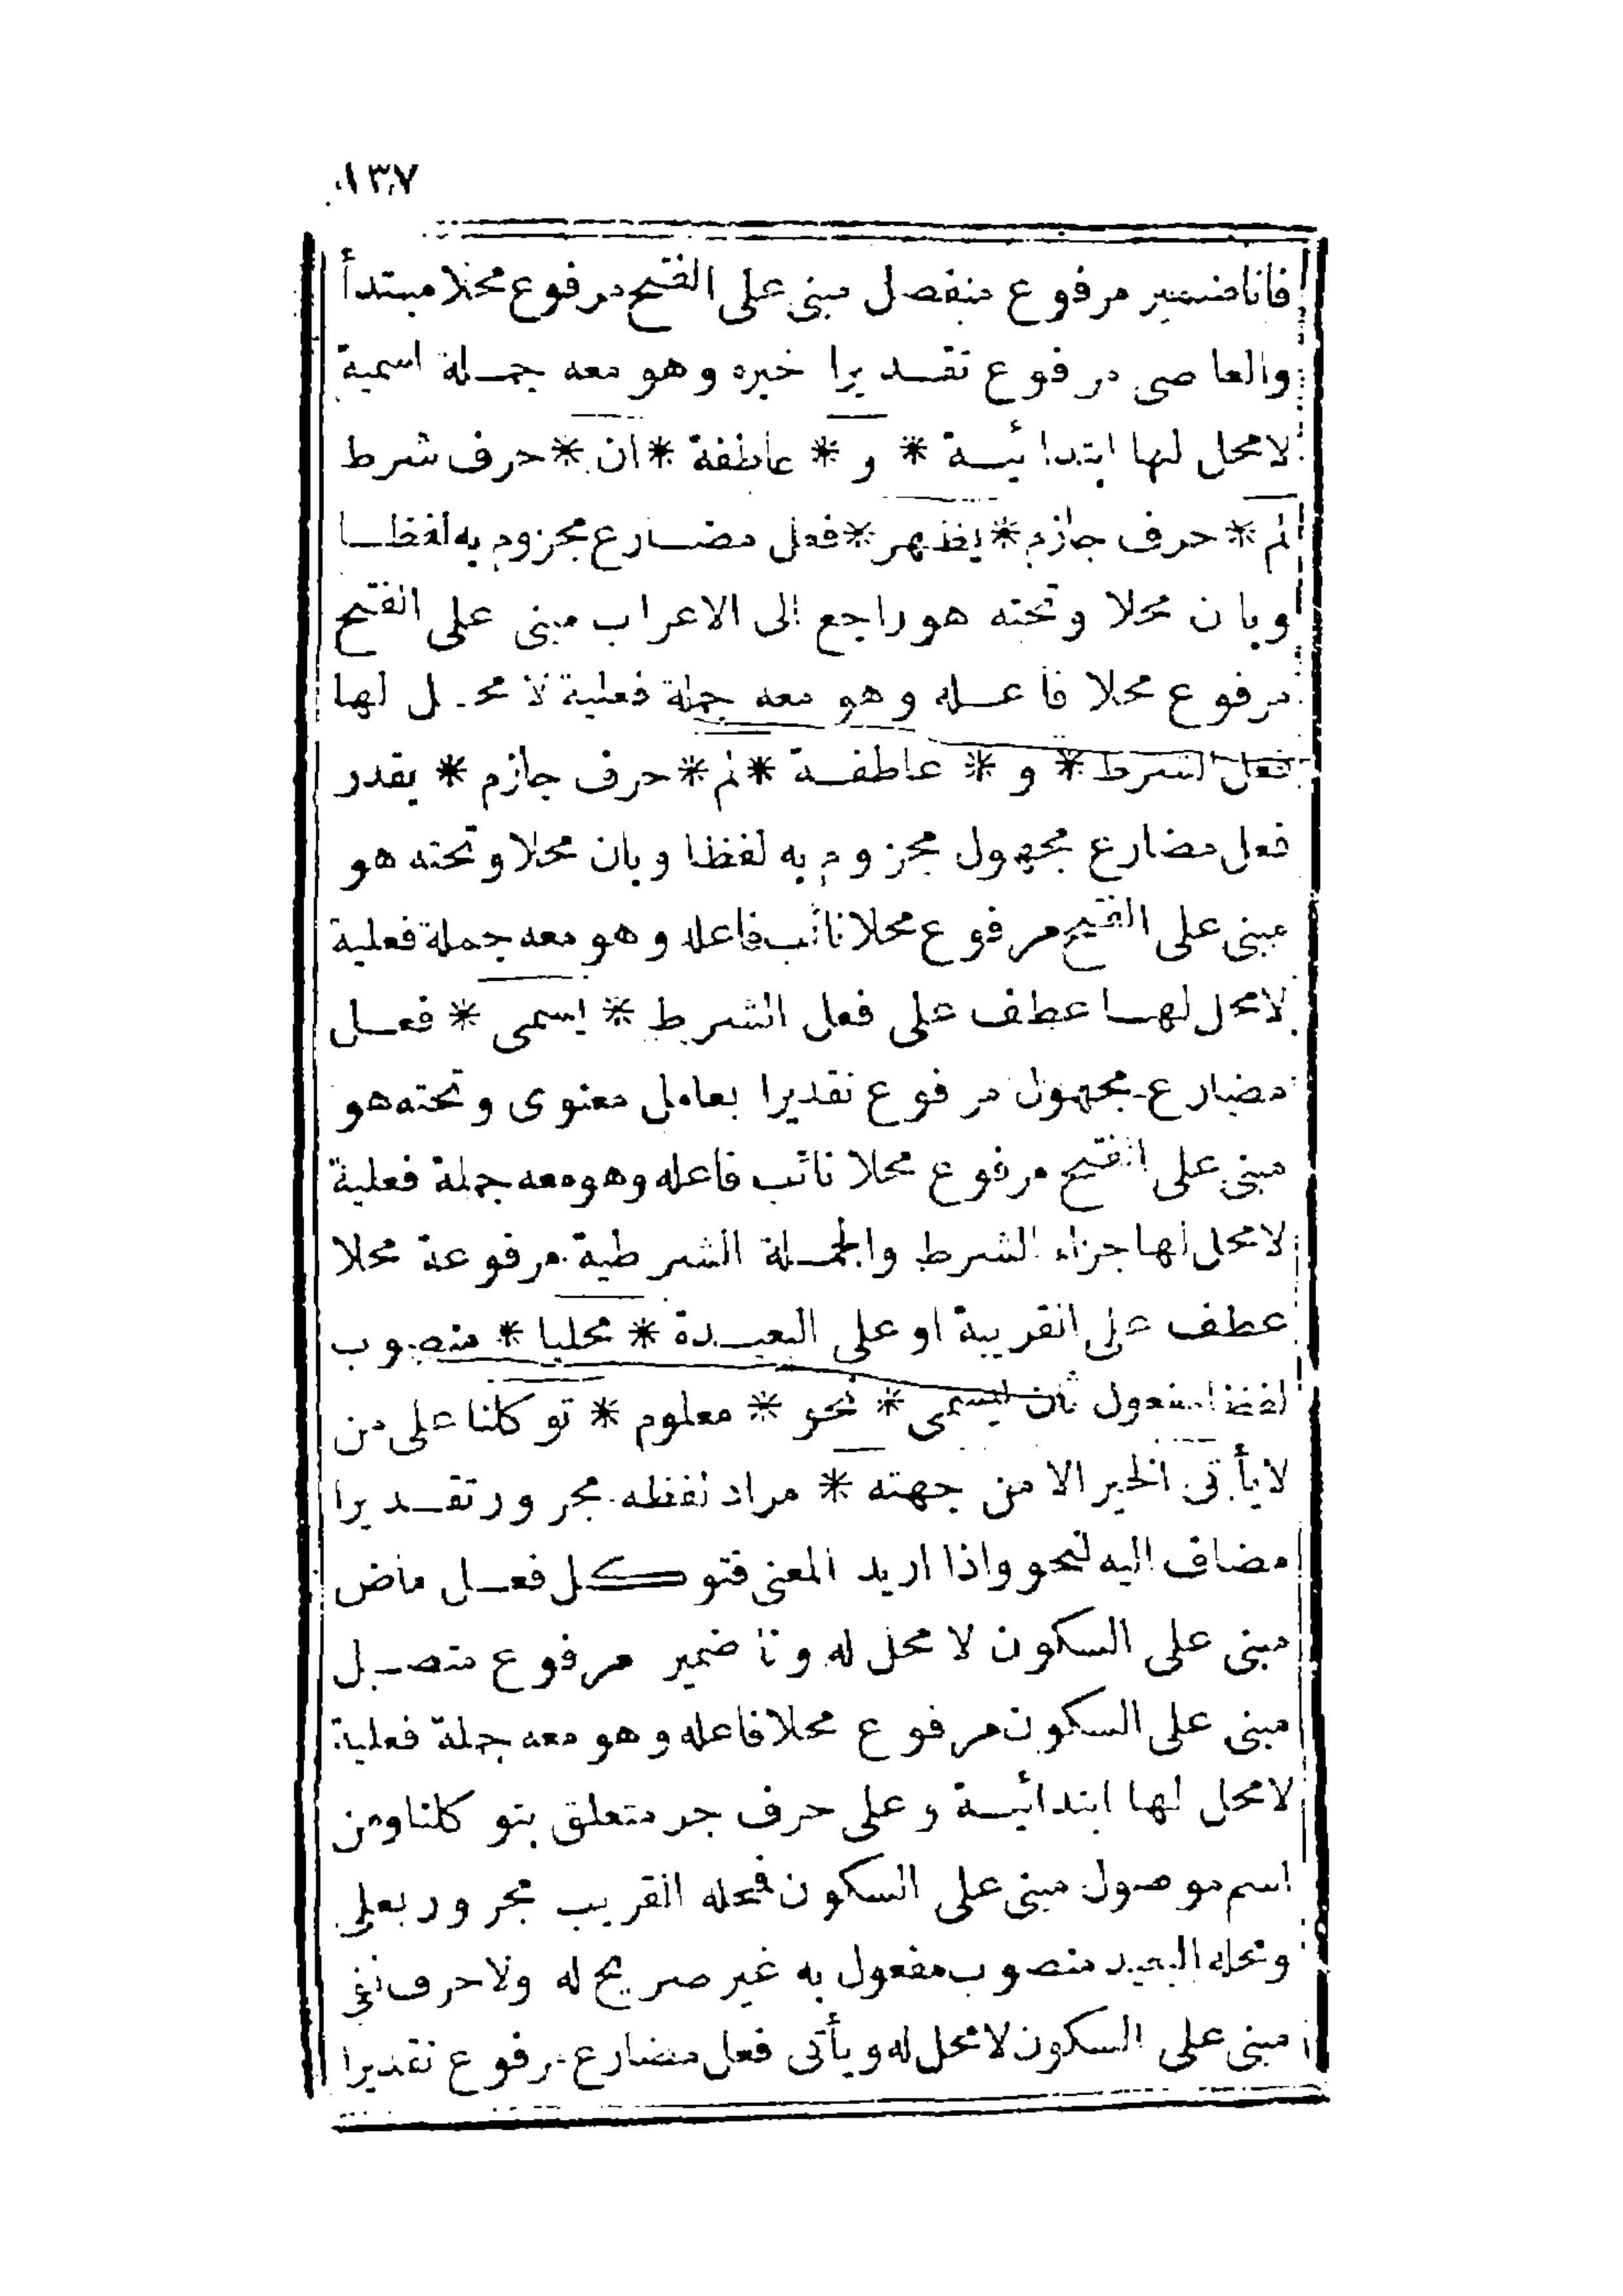 ١٣٧
فانا ضمير مرفوع منفصل مبنى على الفتح مرفوع محلا مبتدأ
والعاصى مرفوع تقديرا خبره وهو معه جملة اسمية
لا محل لها ابتدائية * و * عاطفة * ان * حرف شرط
لم * حرف جازم * يظهر * فعل مضارع مجزوم به لفظا
وبان محلا وتحته هو راجع الى الاعراب مبنى على الفتح
مرفوع محلا فاعله وهو معه جملة فعلية لا محل لها
فعل الشرط * و * عاطفة * لم * حرف جازم * يقدر
فعل مضارع مجهول مجزوم به لفظا وبان محلا وتحته هو
مبنى على الفتح مرفوع محلا نائب فاعله وهو معه جملة فعلية
لا محل لها عطف على فعل الشرط * يسمى * فعل
مضارع مجهول مرفوع تقديرا بعامل معنوى وتحته هو
مبنى على الفتح مرفوع محلا نائب فاعله وهو معه جملة فعلية
لا محل لها جزاء الشرط والجملة الشرطية مرفوعة محلا
عطف على القريبة او على البعيدة * محليا * منصوب
لفظا مفعول ثان ليسمى * نحو * معلوم * توكلنا على من
لا يأتى الخير الا من جهته * مراد لفظه مجرور تقديرا
مضاف اليه لنحو واذا اريد المعنى فتوكل فعل ماض
مبنى على السكون لا محل له ونا ضمير مرفوع متصل
مبنى على السكون مرفوع محلا فاعله وهو معه جملة فعلية
لا محل لها ابتدائية وعلى حرف جر متعلق بتوكلنا ومن
اسم موصول مبنى على السكون فمحله القريب مجرور بعلى
ومحله البعيد منصوب مفعول به غير صريح له ولا حرف نفى
مبنى على السكون لا محل له ويأتى فعل مضارع مرفوع تقديرا